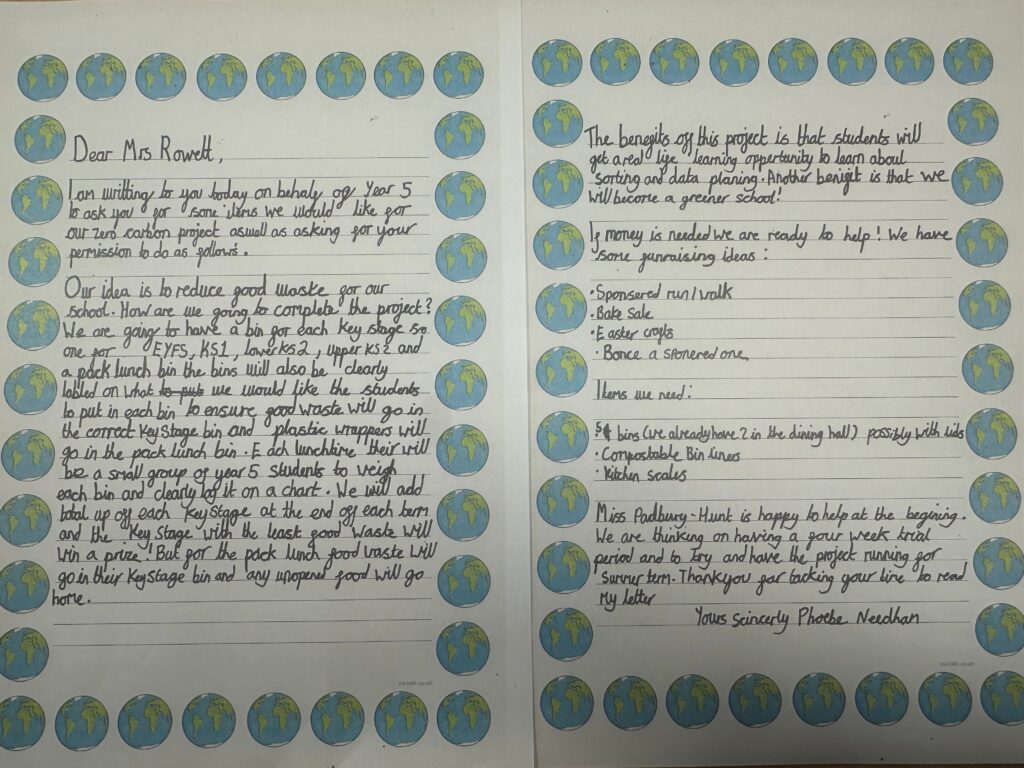 Dear Mrs Rowett,
I am writting to you today on behalf of Year 5
to ask you for some items we would like for
our zero carbon project aswell as asking for your
permission to do as follows.
Our idea is to reduce food waste for our
school. How are we going to complete the project?
We are going to have a bin for each Key stage so
one for EYFS, KS1, lower KS2, upper KS2 and
a pack lunch bin the bins will also be clearly
labled on what to put we would like the students
to put in each bin to ensure food waste will go in
the correct Key Stage bin and plastic wrappers will
go in the pack lunch bin. Each lunchtime their will
be a small group of year 5 students to weigh
each bin and clearly log it on a chart. We will add
total up off each Key Stage at the end off each term
and the Key Stage with the least food waste will
win a prize! But for the pack lunch food waste will
go in their Key Stage bin and any unopened food will go
home.
twinkl.co.uk
The benefits off this project is that students will
get a real life learning opportunity to learn about
sorting and data planing. Another benifit is that we
will become a greener school!
If money is needed we are ready to help! We have
some funraising ideas:
· Sponsered run/walk
· Bake Sale
· Easter crafts
· Bonce a sponered one
Items we need:
5 bins (we already have 2 in the dining hall) possibly with lids
· Compostable Bin liners
· Kitchen Scales
Miss Padbury-Hunt is happy to help at the begining.
We are thinking on having a four week trial
period and to try and have the project running for
summer term. Thankyou for tacking your time to read
my letter
Yours Scincerly Phoebe Needham
twinkl.co.uk